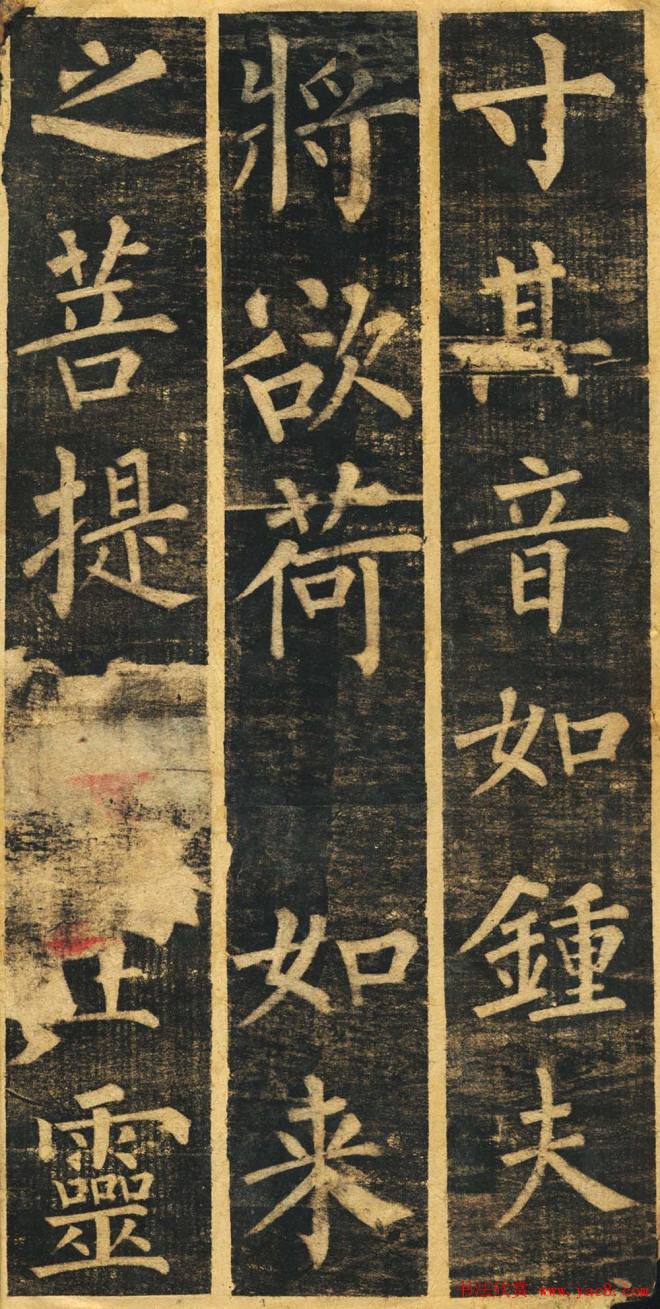 寸其音如鍾夫
將欲荷如来
之菩提靈
www.yac8.com